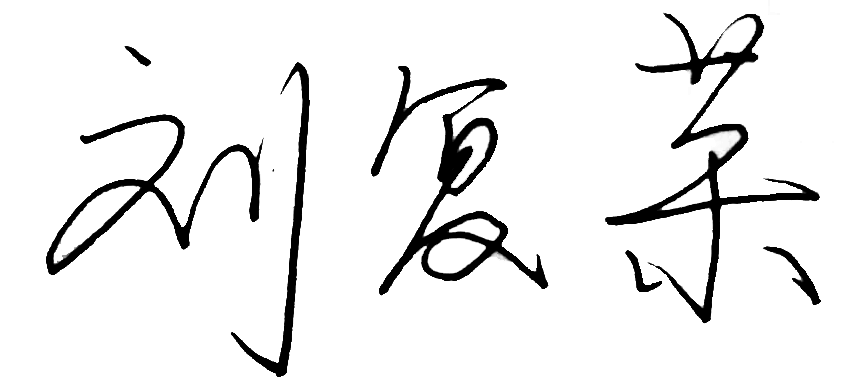 刘复荣